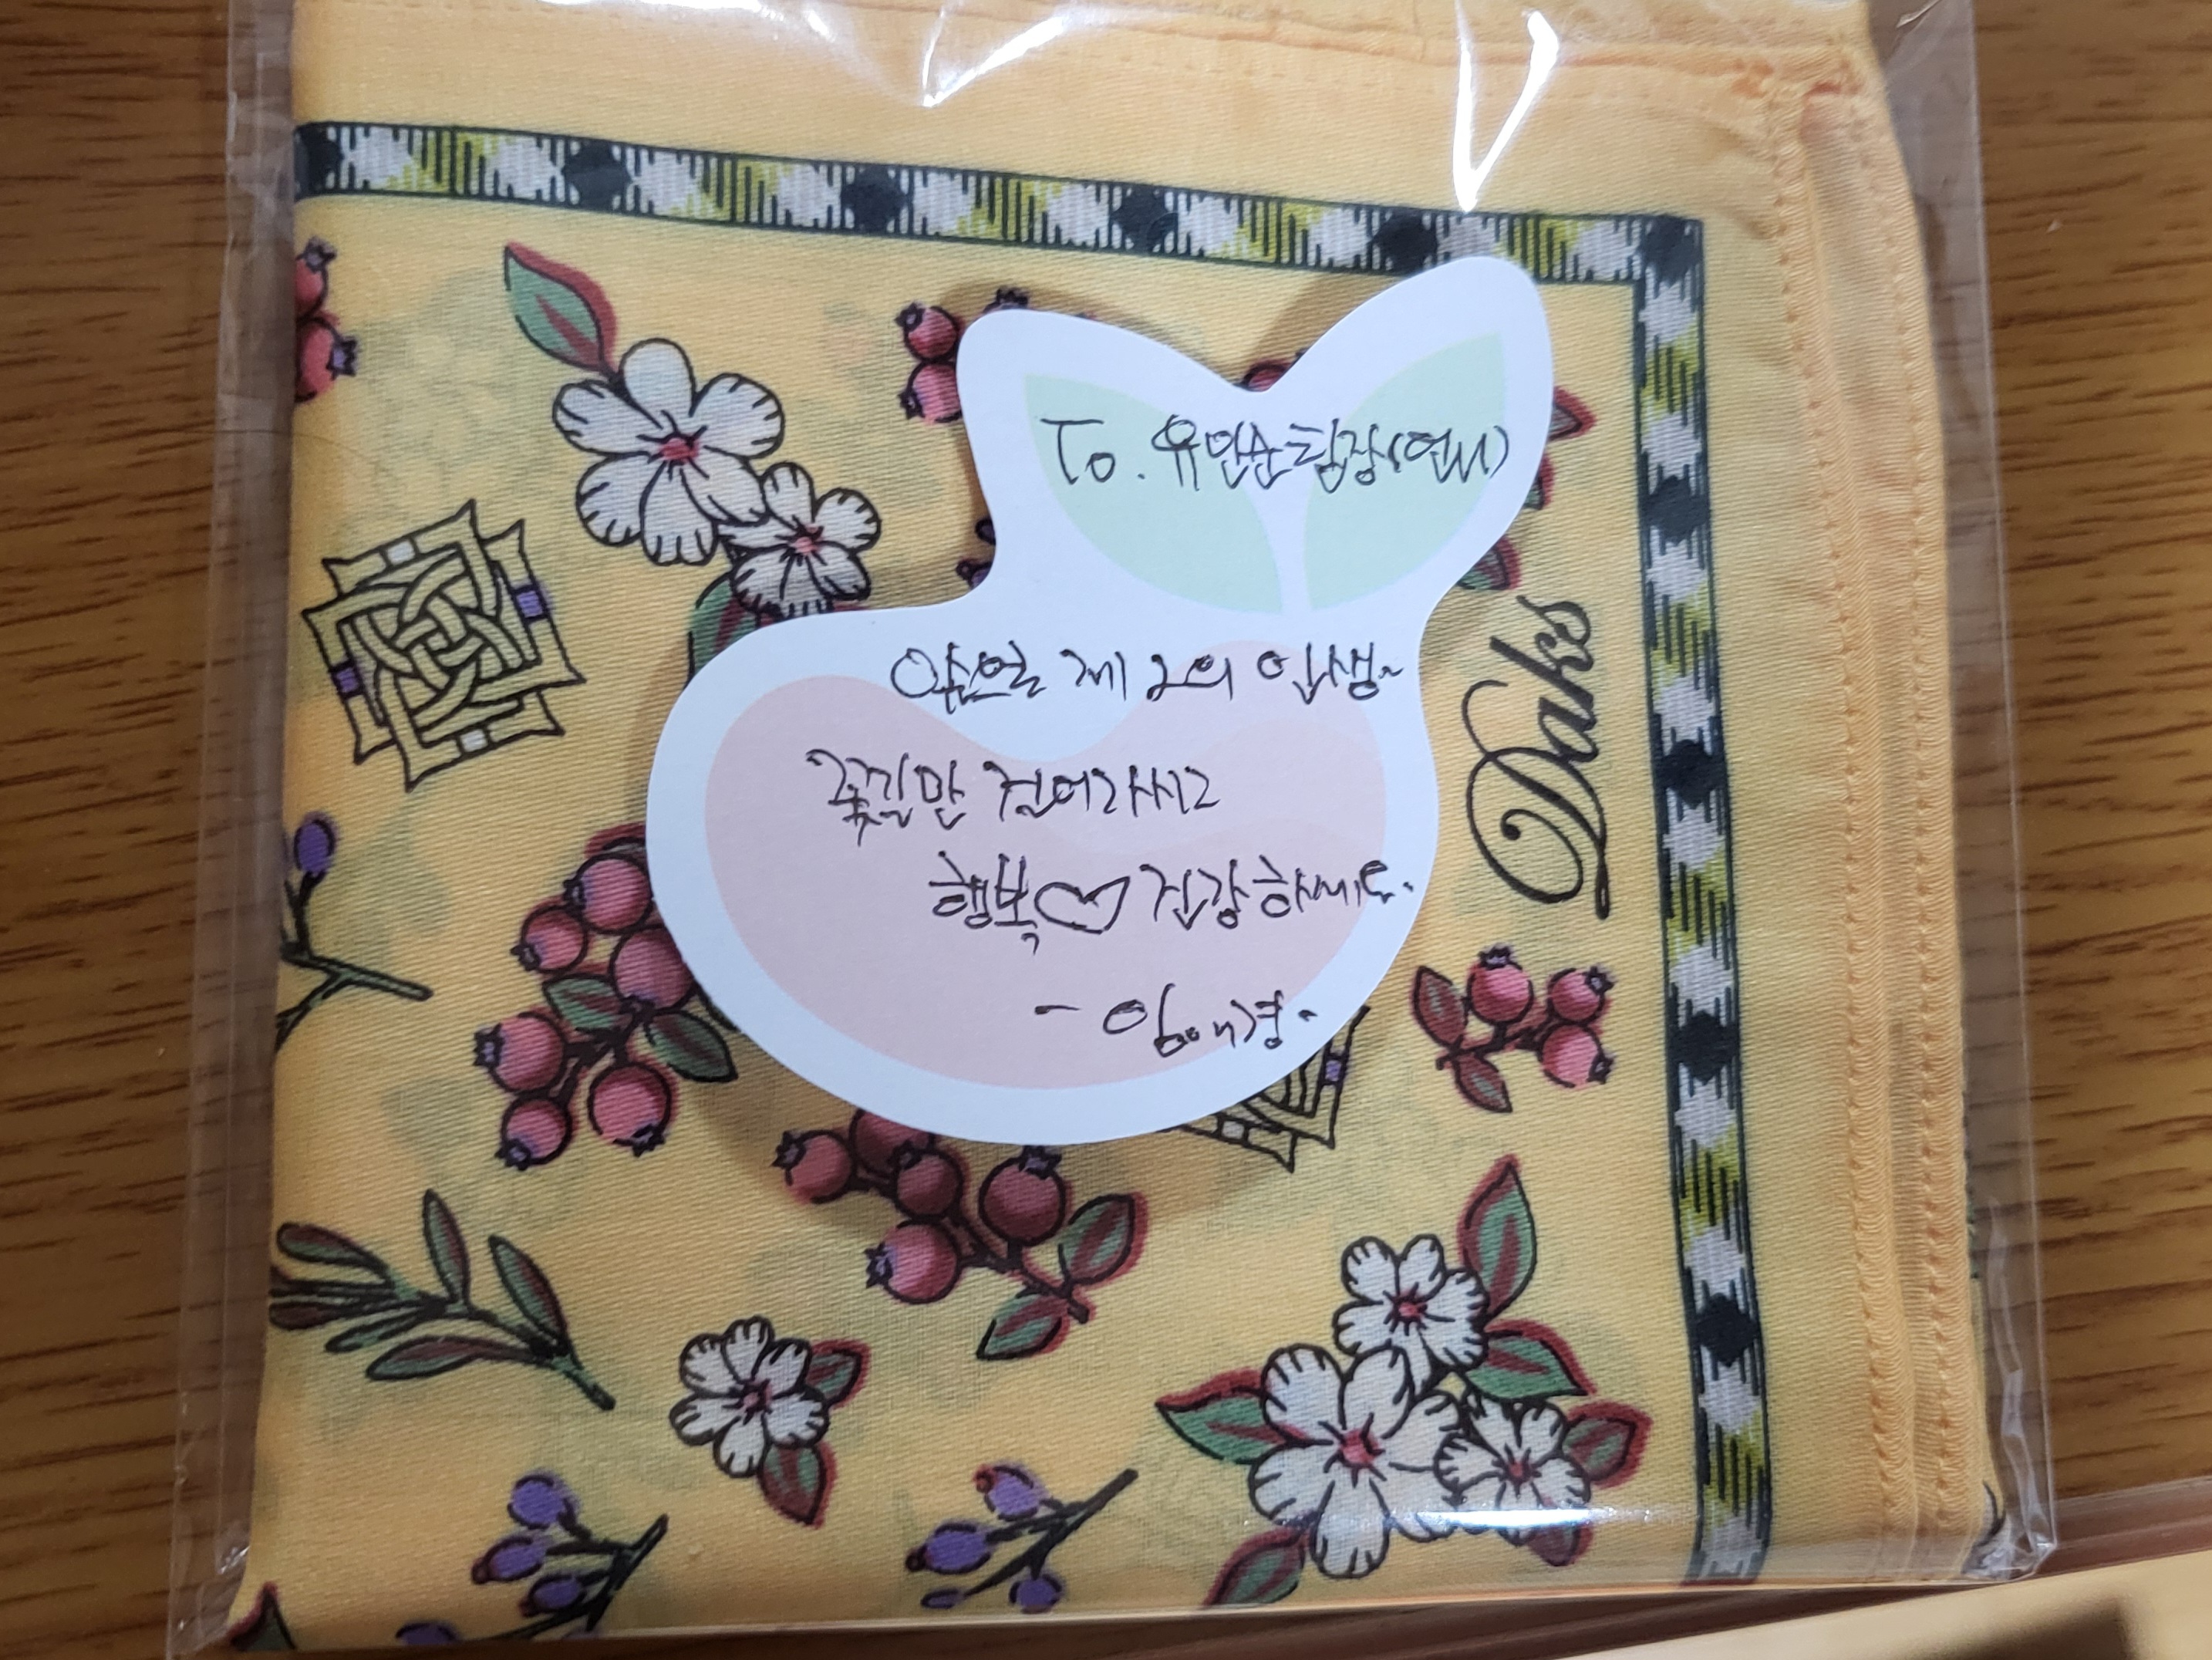 To. 유인순팀장(언니)
제 2의 인생~
꽃길만 걸어가시고
행복♡ 건강하세요.
Daks